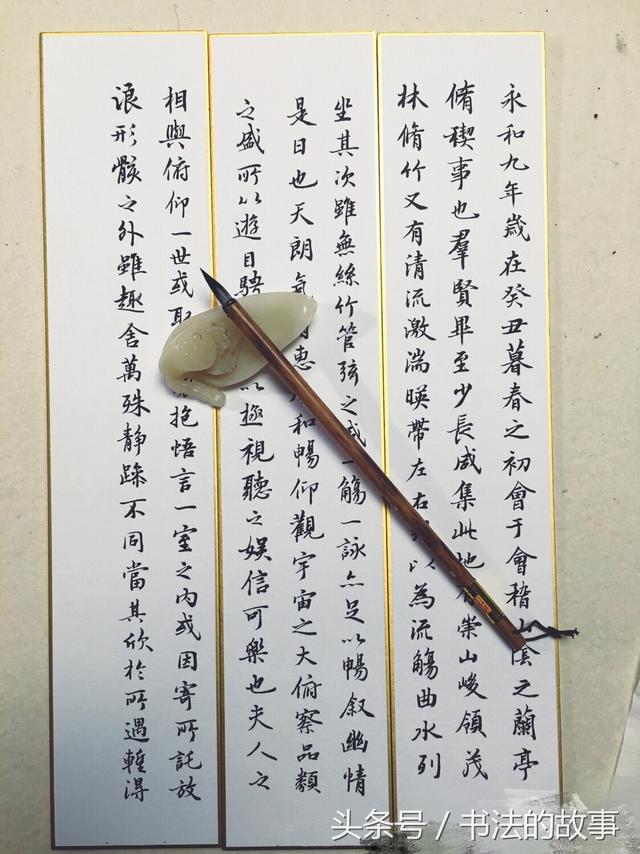 永和九年歲在癸丑暮春之初會于會稽山陰之蘭亭
脩稧事也羣賢畢至少長咸集此地有崇山峻領茂
林脩竹又有清流激湍暎帶左右以為流觴曲水列
坐其次雖無絲竹管弦之盛一觴一詠亦足以暢叙幽情
是日也天朗氣清惠風和暢仰觀宇宙之大俯察品類
之盛所以遊目騁以極視聽之娛信可樂也夫人之
相與俯仰一世或取抱悟言一室之內或因寄所託放
浪形骸之外雖趣舍萬殊靜躁不同當其欣於所遇蹔得
头条号／书法的故事